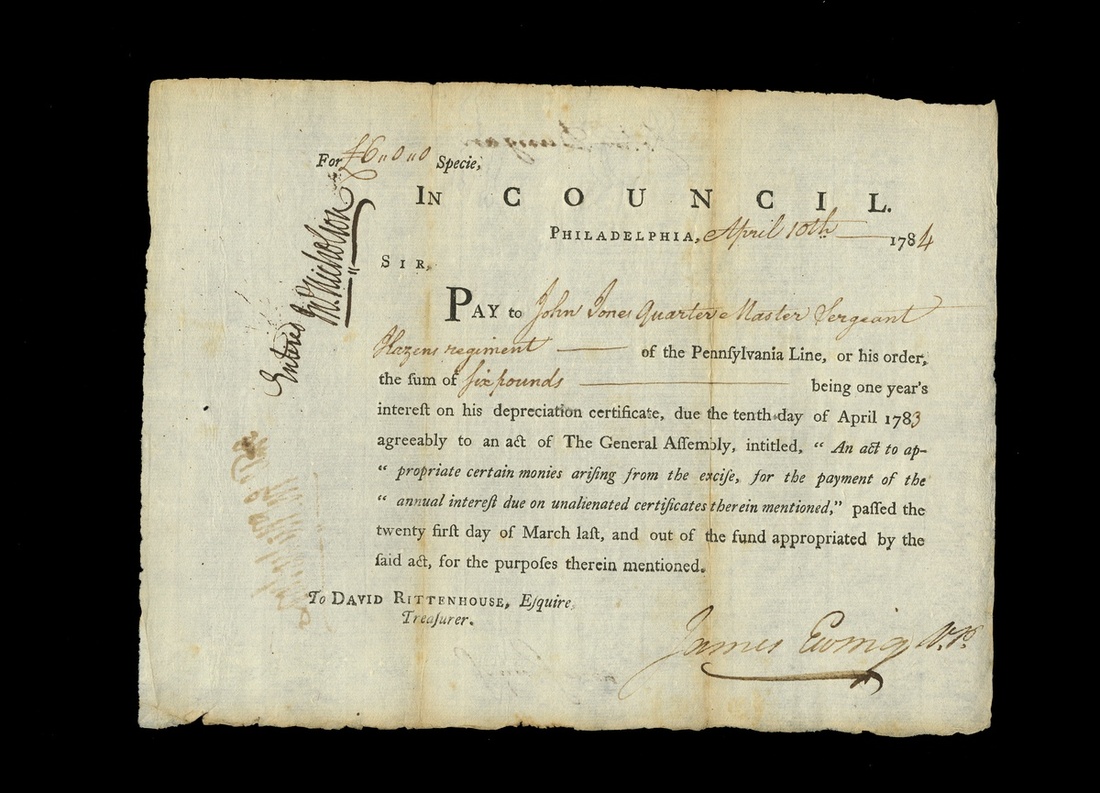 For £6 „ 0 „ 0 Specie,
IN COUNCIL.
PHILADELPHIA, April 10th 1784
SIR,
PAY to John Jones Quarter Master Sergeant
Hazens regiment of the Pennſylvania Line, or his order,
the ſum of ſix pounds being one year's
intereſt on his depreciation certificate, due the tenth day of April 1783
agreeably to an act of The General Aſſembly, intitled, “ An act to ap-
“ propriate certain monies ariſing from the exciſe, for the payment of the
“ annual intereſt due on unalienated certificates therein mentioned,” paſſed the
twenty firſt day of March laſt, and out of the fund appropriated by the
ſaid act, for the purpoſes therein mentioned.
To DAVID RITTENHOUSE, Eſquire,
Treaſurer.
James Ewing V.P.
Entered Jn. Nicholson